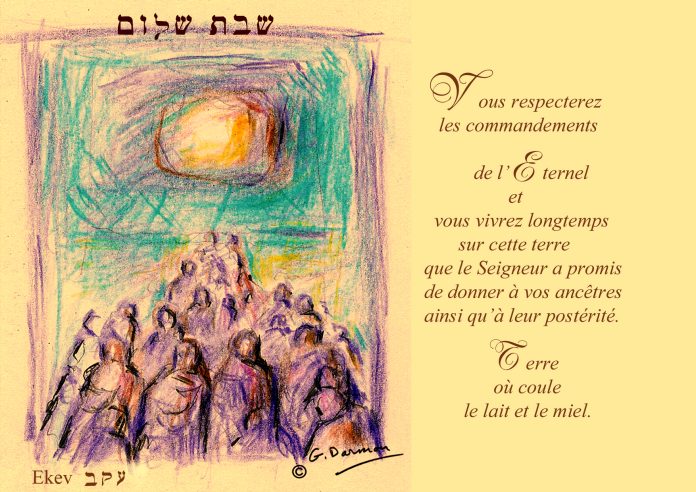 שבת שלום
Vous respecterez
les commandements
de l’Eternel
et
vous vivrez longtemps
sur cette terre
que le Seigneur a promis
de donner à vos ancêtres
ainsi qu’à leur postérité.
Terre
où coule
le lait et le miel.
© G. Darmon
Ekev עקב